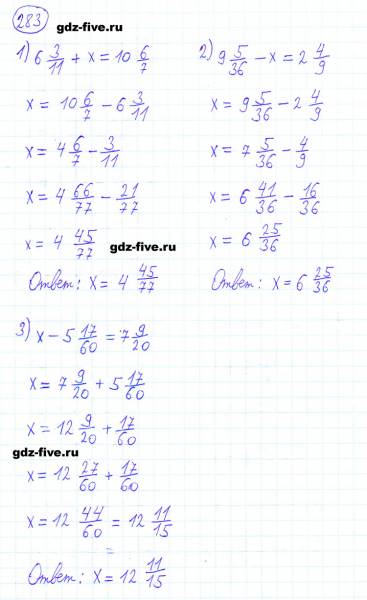 283
gdz-five.ru
1) 6 3/11 + x = 10 6/7
x = 10 6/7 - 6 3/11
x = 4 6/7 - 3/11
x = 4 66/77 - 21/77
x = 4 45/77
gdz-five.ru
Ответ: x = 4 45/77
2) 9 5/36 - x = 2 4/9
x = 9 5/36 - 2 4/9
x = 7 5/36 - 4/9
x = 6 41/36 - 16/36
x = 6 25/36
Ответ: x = 6 25/36
3) x - 5 17/60 = 7 9/20
x = 7 9/20 + 5 17/60
x = 12 9/20 + 17/60
gdz-five.ru
x = 12 27/60 + 17/60
x = 12 44/60 = 12 11/15
=
Ответ: x = 12 11/15